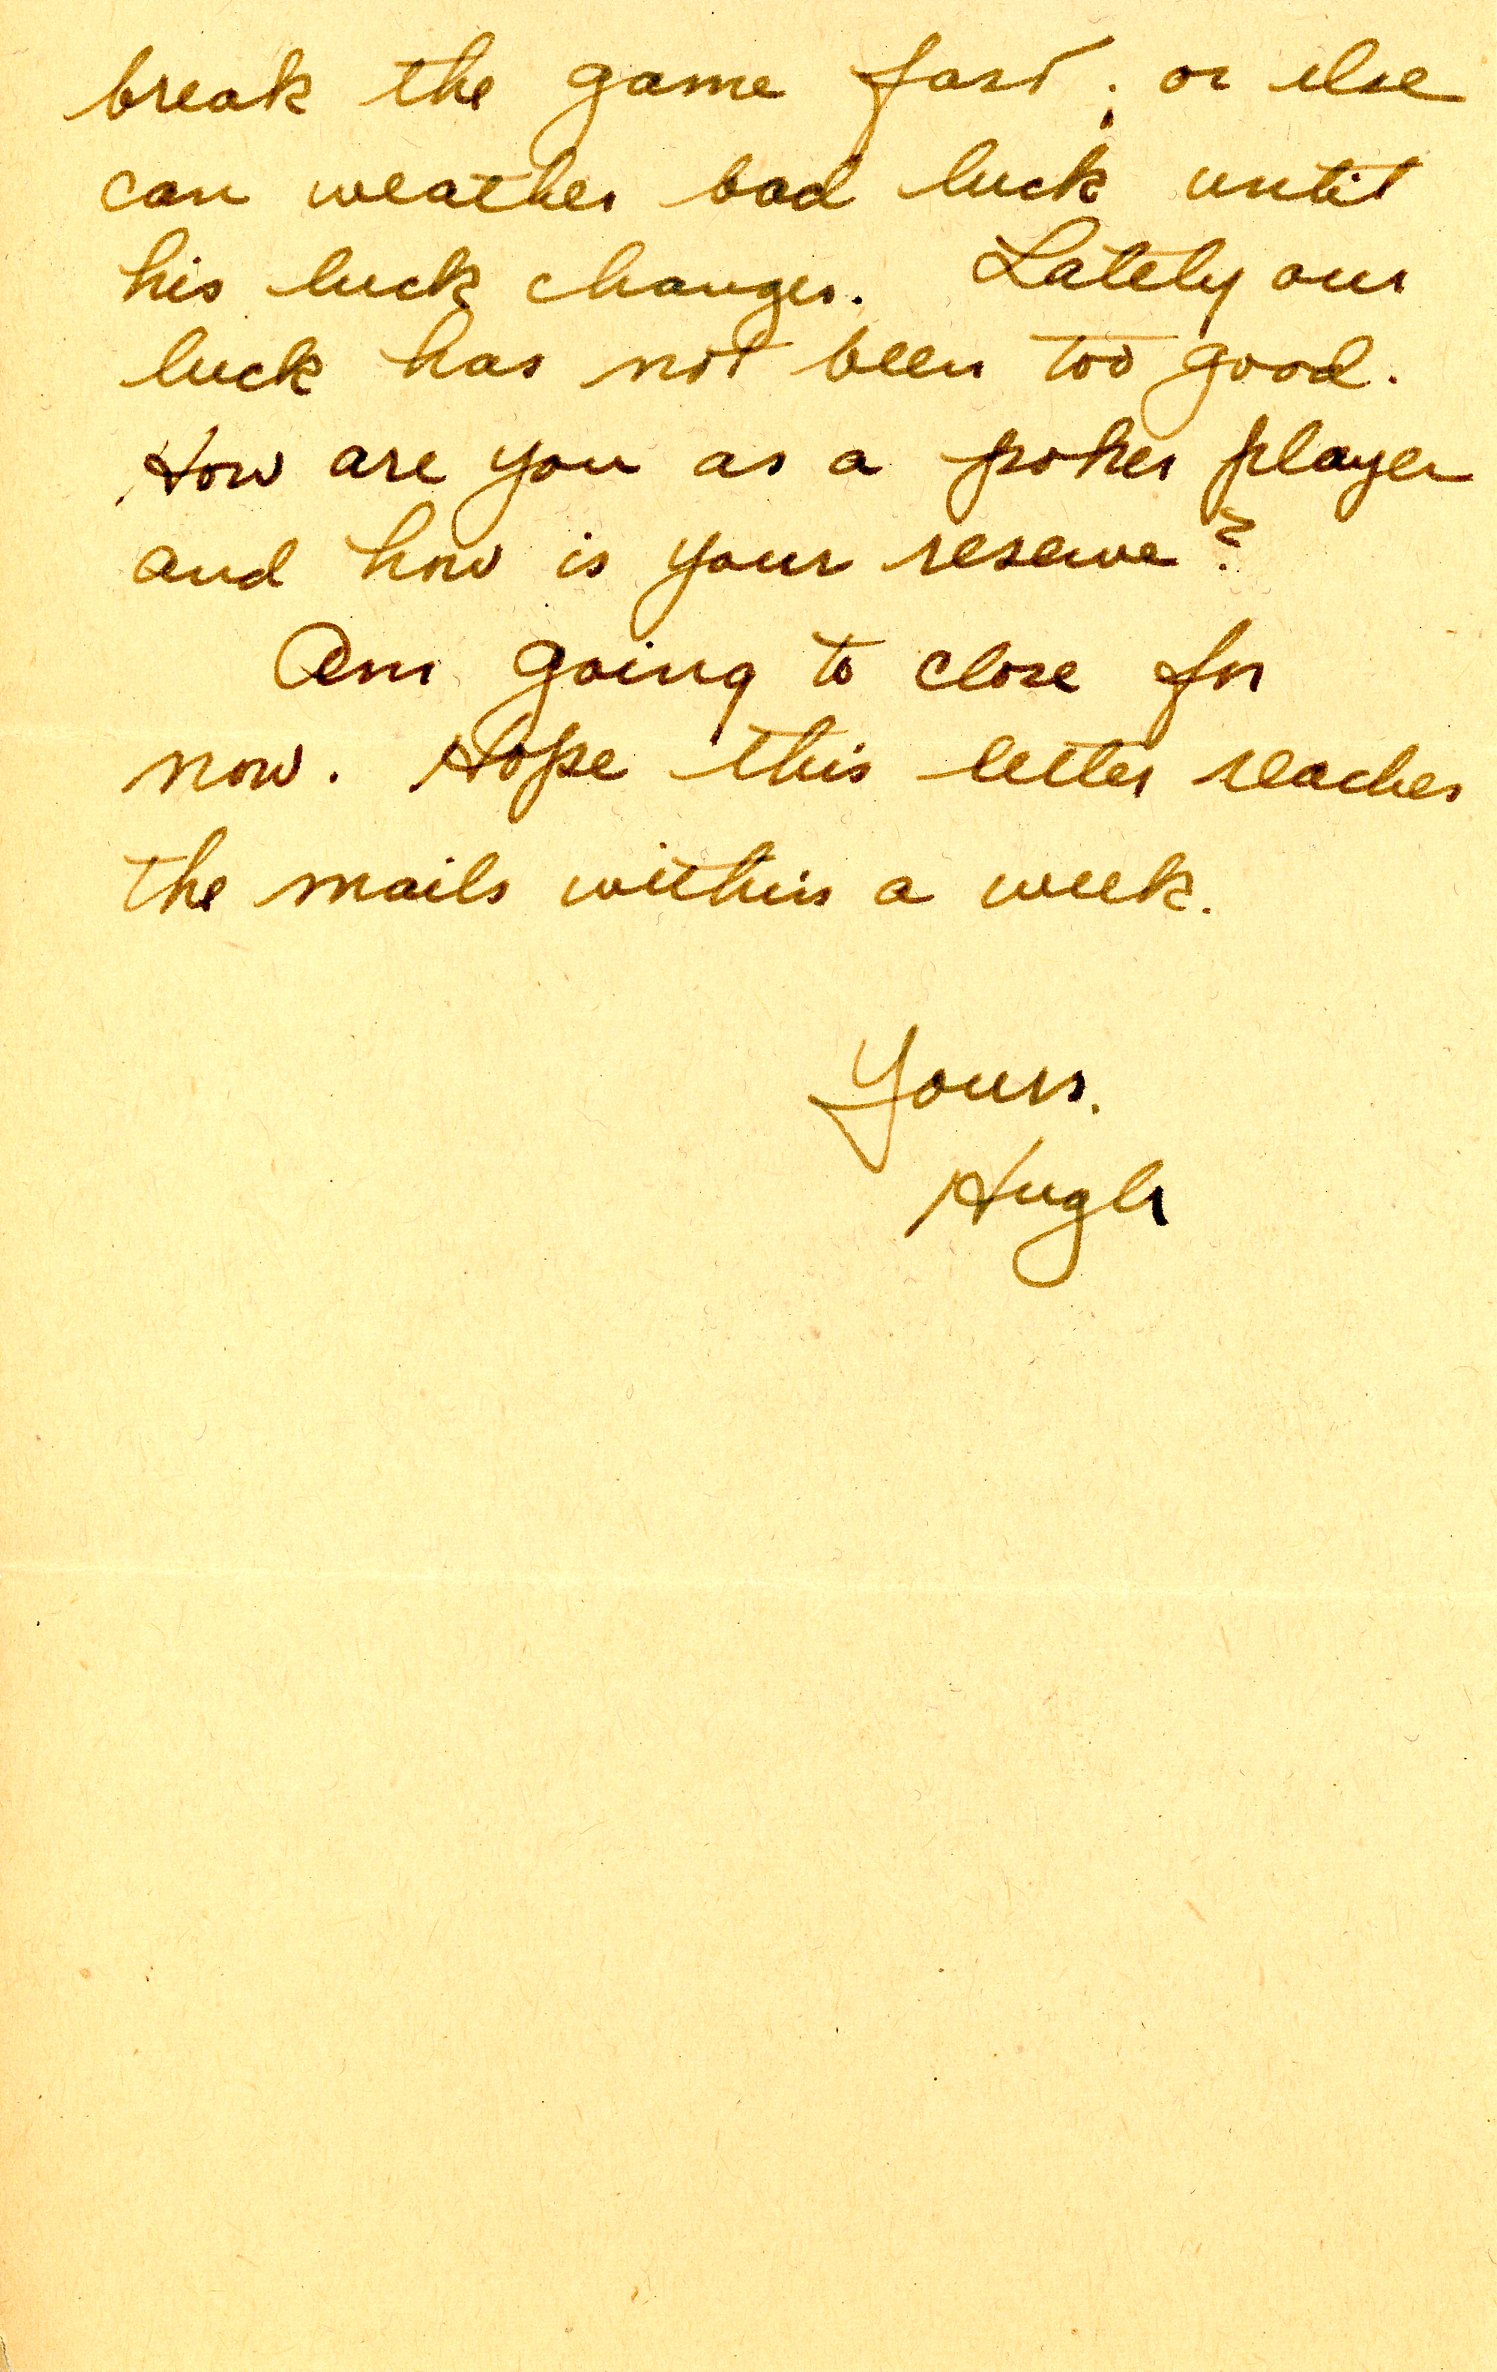 break the game fast; or else
can weather bad luck until
his luck changes. Lately our
luck has not been too good.
How are you as a poker player
and how is your reserve?
Am going to close for
now. Hope this letter reaches
the mails within a week.
Yours.
Hugh